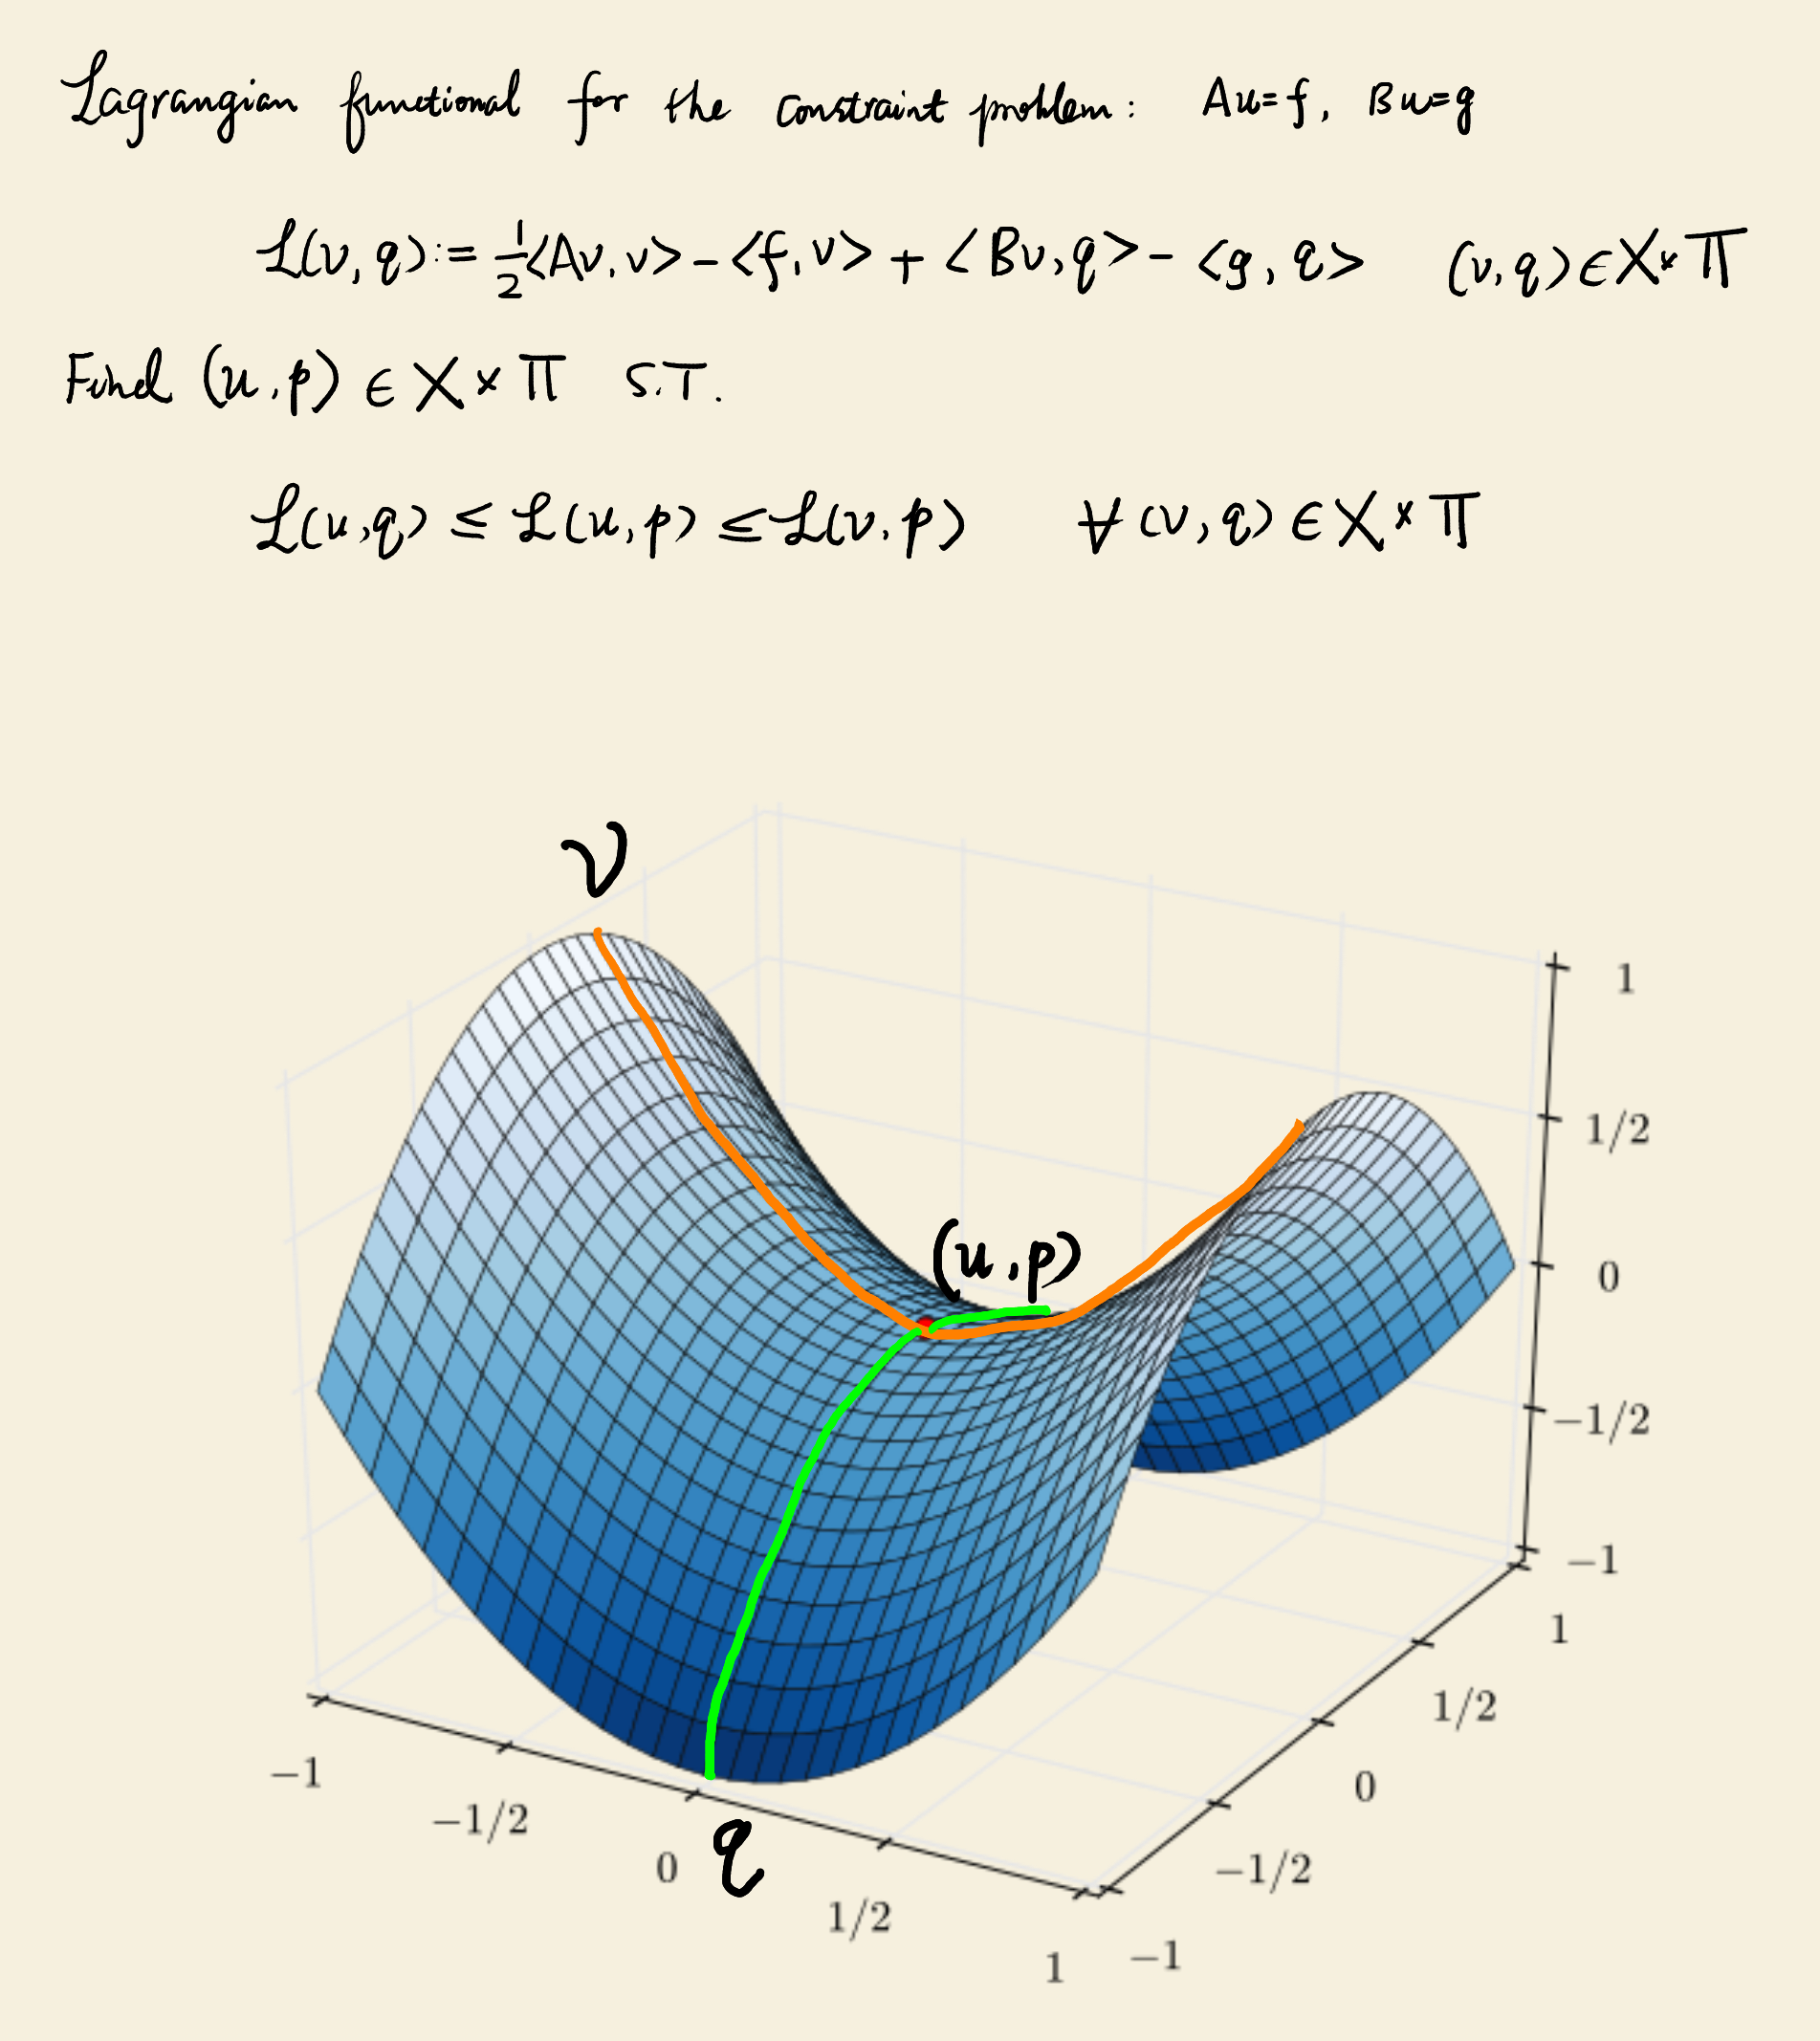 Lagrangian functional for the constraint problem: Au=f, Bu=g
ℒ(v, q) := 1/2<Av, v> - <f, v> + <Bv, q> - <g, q> (v, q) ∈ X × Π
Find (u, p) ∈ X × Π S.T.
ℒ(u, q) ≤ ℒ(u, p) ≤ ℒ(v, p) ∀ (v, q) ∈ X × Π
v
1
1/2
(u, p)
0
−1/2
−1
1
1/2
−1
0
−1/2
q
−1/2
0
1/2
1
−1